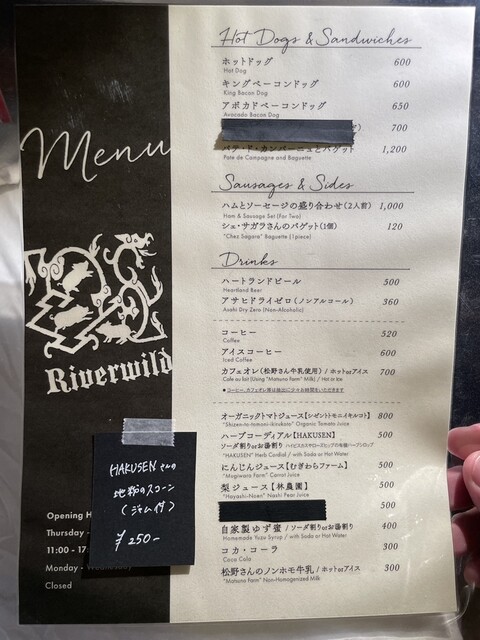 Menu
Riverwild
HAKUSENさんの
地粉のスコーン
(ジャム付)
¥250-
Opening H
Thursday -
11:00 - 17
Monday - Wednesday
Closed
Hot Dogs & Sandwiches
ホットドッグ 600
Hot Dog
キングベーコンドッグ 600
King Bacon Dog
アボカドベーコンドッグ 650
Avocado Bacon Dog
700
パテ・ド・カンパーニュとバゲット 1,200
Pate de Campagne and Baguette
Sausages & Sides
ハムとソーセージの盛り合わせ(2人前) 1,000
Ham & Sausage Set (For Two)
シェ・サガラさんのバゲット(1個) 120
"Chez Sagara" Baguette (1piece)
Drinks
ハートランドビール 500
Heartland Beer
アサヒドライゼロ(ノンアルコール) 360
Asahi Dry Zero (Non-Alcoholic)
コーヒー 520
Coffee
アイスコーヒー 600
Iced Coffee
カフェオレ(松野さん牛乳使用)/ホットorアイス 700
Cafe au lait (Using "Matsuno Farm" Milk) / Hot or Ice
●コーヒー、カフェオレ等は抽出に少々お時間をいただきます
オーガニックトマトジュース【シゼントトモニイキルコト】 800
"Shizen-to-tomoni-ikirukoto" Organic Tomato Juice
ハーブコーディアル【HAKUSEN】 500
ソーダ割りorお湯割り
"HAKUSEN" Herb Cordial / with Soda or Hot Water
にんじんジュース【むぎわらファーム】 500
"Mugiwara Farm" Carrot Juice
梨ジュース【林農園】 500
"Hayashi-Noen" Nashi Pear Juice
500
自家製ゆず蜜 /ソーダ割りorお湯割り 400
Homemade Yuzu Syrup / with Soda or Hot Water
コカ・コーラ 300
Coca Cola
松野さんのノンホモ牛乳 /ホットorアイス 300
"Matsuno Farm" Non-Homogenized Milk